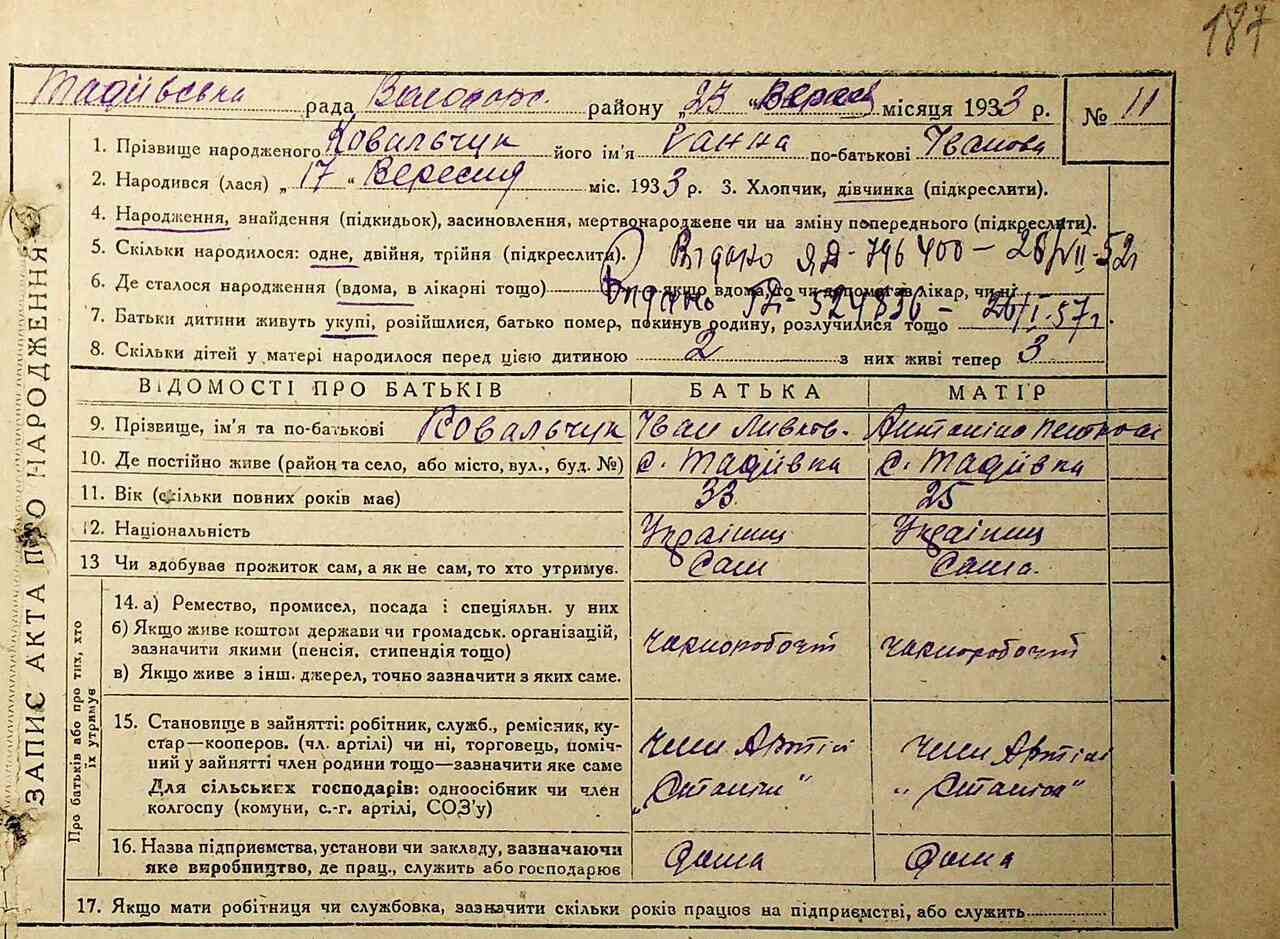 187
Тадіївська рада Володарс. району „23 " Вересня місяця 1933 р. № 11
1. Прізвище народженого Ковальчук його ім'я Ганна по-батькові Іванова
2. Народився (лася) „ 17 " Вересня міс. 1933 р. 3. Хлопчик, дівчинка (підкреслити).
4. Народження, знайдення (підкидьок), засиновлення, мертвонароджене чи на зміну попереднього (підкреслити).
5. Скільки народилося: одне, двійня, трійня (підкреслити). Видано ЯД-796400 - 28/VII-52
6. Де сталося народження (вдома, в лікарні тощо) якщо вдома, то чи допомагав лікар, чи ні
Видано 524836 - 26/I-57 г
7. Батьки дитини живуть укупі, розійшлися, батько помер, покинув родину, розлучилися тощо
8. Скільки дітей у матері народилося перед цією дитиною 2 з них живі тепер 3
ЗАПИС АКТА ПРО НАРОДЖЕННЯ
ВІДОМОСТІ ПРО БАТЬКІВ БАТЬКА МАТІР
9. Прізвище, ім'я та по-батькові Ковальчук Іван Антаніна
10. Де постійно живе (район та село, або місто, вул., буд. №) с. Тадіївка с. Тадіївка
11. Вік (скільки повних років має) 33 25
12. Національність Українц Українц
13 Чи здобуває прожиток сам, а як не сам, то хто утримує. Сам Сама.
Про батьків або про тих, хто їх утримує
14. а) Ремество, промисел, посада і спеціяльн. у них
б) Якщо живе коштом держави чи громадськ. організацій,
зазначити якими (пенсія, стипендія тощо) чорноробочі чорноробочі
в) Якщо живе з інш. джерел, точно зазначити з яких саме.
15. Становище в зайнятті: робітник, служб., ремісник, ку-
стар—кооперов. (чл. артілі) чи ні, торговець, поміч- член Артілі член Артілі
ний у зайнятті член родини тощо—зазначити яке саме
Для сільських господарів: одноосібник чи член
колгоспу (комуни, с.-г. артілі, СОЗ'у)
16. Назва підприємства, установи чи закладу, зазначаючи
яке виробництво, де прац., служить або господарює
17. Якщо мати робітниця чи службовка, зазначити скільки років працює на підприємстві, або служить